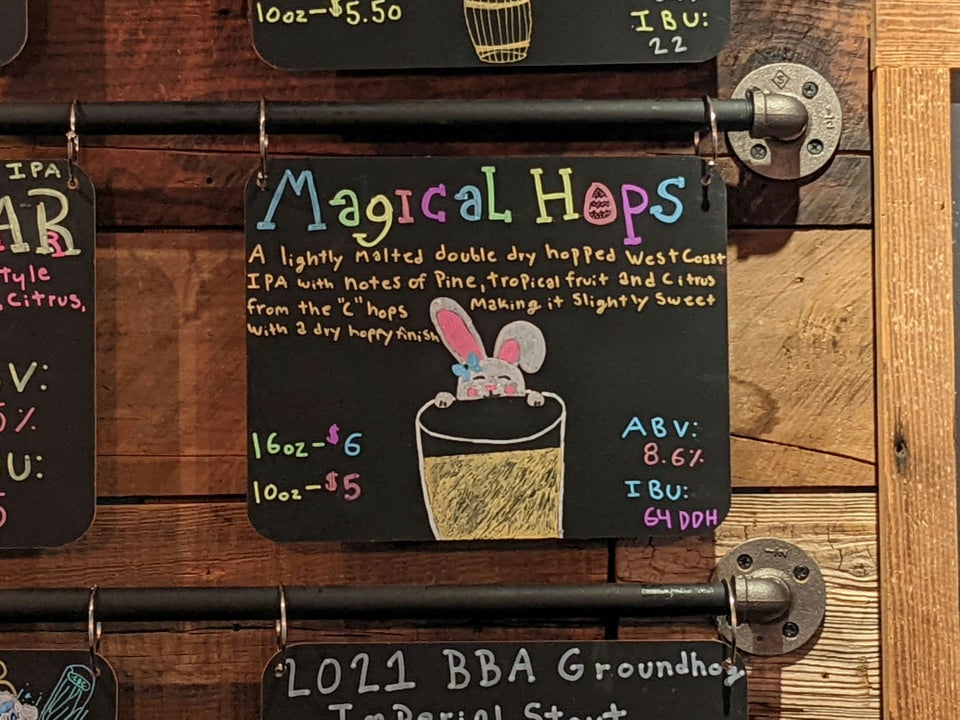 10oz-$5.50
IBU:
22
IPA
AR
tyle
, Citrus,
V:
%
U:
Magical Hops
A lightly Malted double dry hopped West Coast
IPA with notes of Pine, tropical fruit and Citrus
from the "C" hops Making it Slightly Sweet
with a dry hoppy finish
16oz-$6
10oz-$5
ABV:
8.6%
IBU:
64 DDH
2021 BBA Groundhog
Imperial Stout